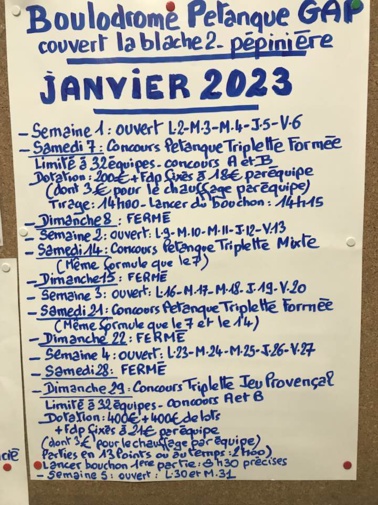 Boulodrome Petanque GAP
couvert la blache 2 - pépinière
JANVIER 2023
- Semaine 1 : ouvert L.2-M.3-M.4-J.5-V.6
- Samedi 7 : Concours Petanque Triplette Formée
Limité à 32 équipes - concours A et B
Dotation : 200€ + Fdp fixés à 18€ par équipe
(dont 3€ pour le chauffage par équipe)
Tirage : 14h00 - Lancer du bouchon : 14h15
- Dimanche 8 : FERMÉ
- Semaine 2 : ouvert : L.9-M.10-M.11-J.12-V.13
- Samedi 14 : Concours Petanque Triplette Mixte
(Même formule que le 7)
- Dimanche 15 : FERMÉ
- Semaine 3 : ouvert : L.16-M.17-M.18-J.19-V.20
- Samedi 21 : Concours Petanque Triplette Formée
(Même formule que le 7 et le 14)
- Dimanche 22 : FERMÉ
- Semaine 4 : ouvert : L.23-M.24-M.25-J.26-V.27
- Samedi 28 : FERMÉ
- Dimanche 29 : Concours Triplette Jeu Provençal
Limité à 32 équipes - concours A et B
Dotation : 400€ + 400€ de lots
+ Fdp fixés à 21€ par équipe
(dont 3€ pour le chauffage par équipe)
Parties en 13 Points ou au temps : 2h00)
- Lancer bouchon 1ère partie : 8h30 précises
- Semaine 5 : ouvert : L.30 et M.31